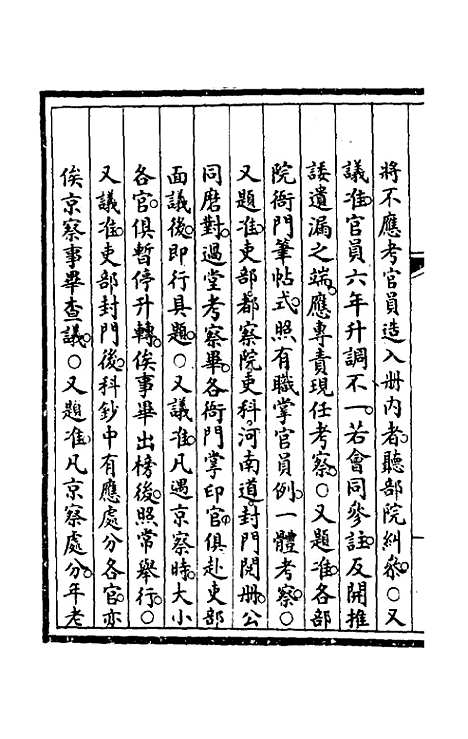 將不應考官員造入册内者聽部院糾叅○又
議准官員六年升調不一若會同叅註反開推
諉遺漏之端應專責現任考察○又題准各部
院衙門筆帖式照有職掌官員例一體考察○
又題准吏部都察院吏科河南道封門閱册公
同磨對過堂考察畢各衙門掌印官俱赴吏部
面議後即行具題○又議准凡遇京察時大小
各官俱暫停升轉俟事畢出榜後照常舉行○
又議准吏部封門後科鈔中有應處分各官亦
俟京察事畢查議○又題准凡京察處分年老